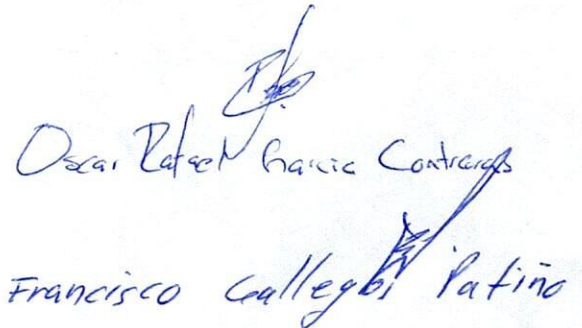 Oscar Rafael Garcia Contreras
Francisco Gallegos Patiño